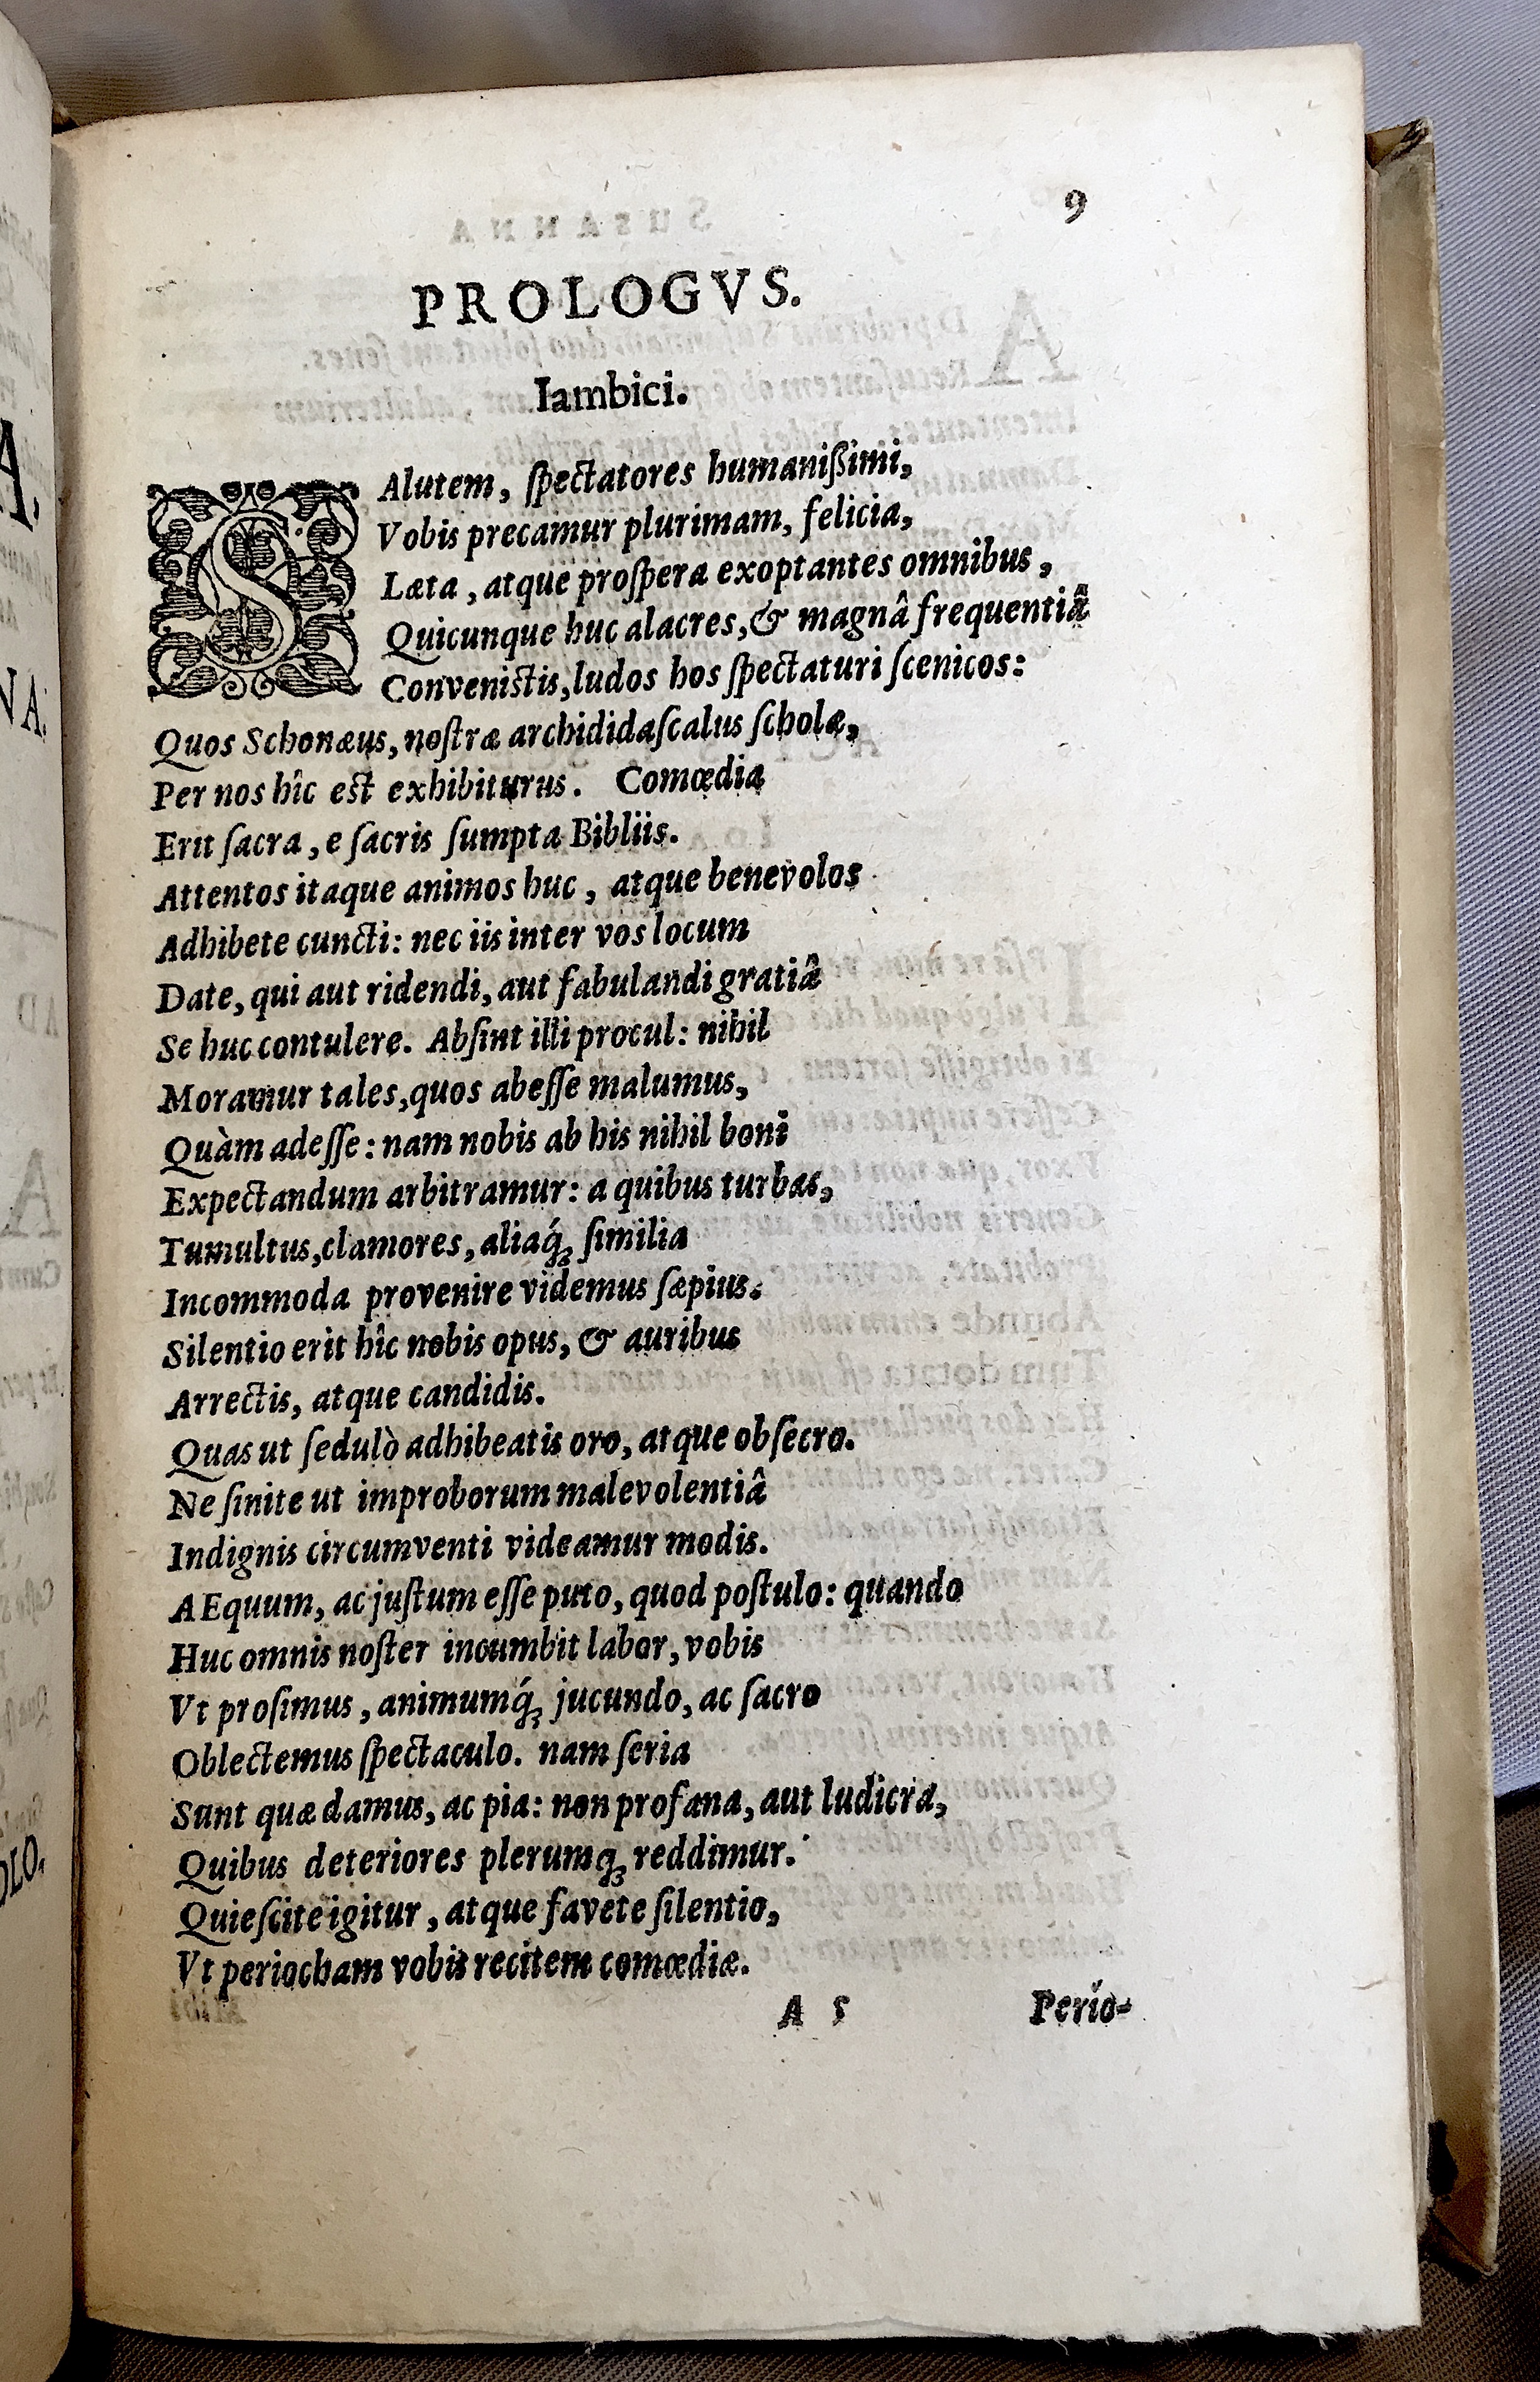 9
PROLOGVS.
Iambici.
SAlutem, ſpectatores humaniſſimi,
Vobis precamur plurimam, felicia,
Læta, atque proſpera exoptantes omnibus,
Quicunque huc alacres, & magnâ frequentiâ
Conveniſtis, ludos hos ſpectaturi ſcenicos:
Quos Schonæus, noſtræ archididaſcalus ſcholæ,
Per nos hîc eſt exhibiturus. Comœdia
Erit ſacra, e ſacris ſumpta Bibliis.
Attentos itaque animos huc, atque benevolos
Adhibete cuncti: nec iis inter vos locum
Date, qui aut ridendi, aut fabulandi gratiâ
Se huc contulere. Abſint illi procul: nihil
Moramur tales, quos abeſſe malumus,
Quàm adeſſe: nam nobis ab his nihil boni
Expectandum arbitramur: a quibus turbas,
Tumultus, clamores, aliaq́ꝫ ſimilia
Incommoda provenire videmus ſæpius.
Silentio erit hîc nobis opus, & auribus
Arrectis, atque candidis.
Quas ut ſedulò adhibeatis oro, atque obſecro.
Ne ſinite ut improborum malevolentiâ
Indignis circumventi videamur modis.
AEquum, ac juſtum eſſe puto, quod poſtulo: quando
Huc omnis noſter incumbit labor, vobis
Vt proſimus, animumq́ꝫ jucundo, ac ſacro
Oblectemus ſpectaculo. nam ſeria
Sunt quæ damus, ac pia: non profana, aut ludicra,
Quibus deteriores plerumqꝫ reddimur.
Quieſcite igitur, atque favete ſilentio,
Vt periocham vobis recitem comœdiæ.
A 5
Perio-